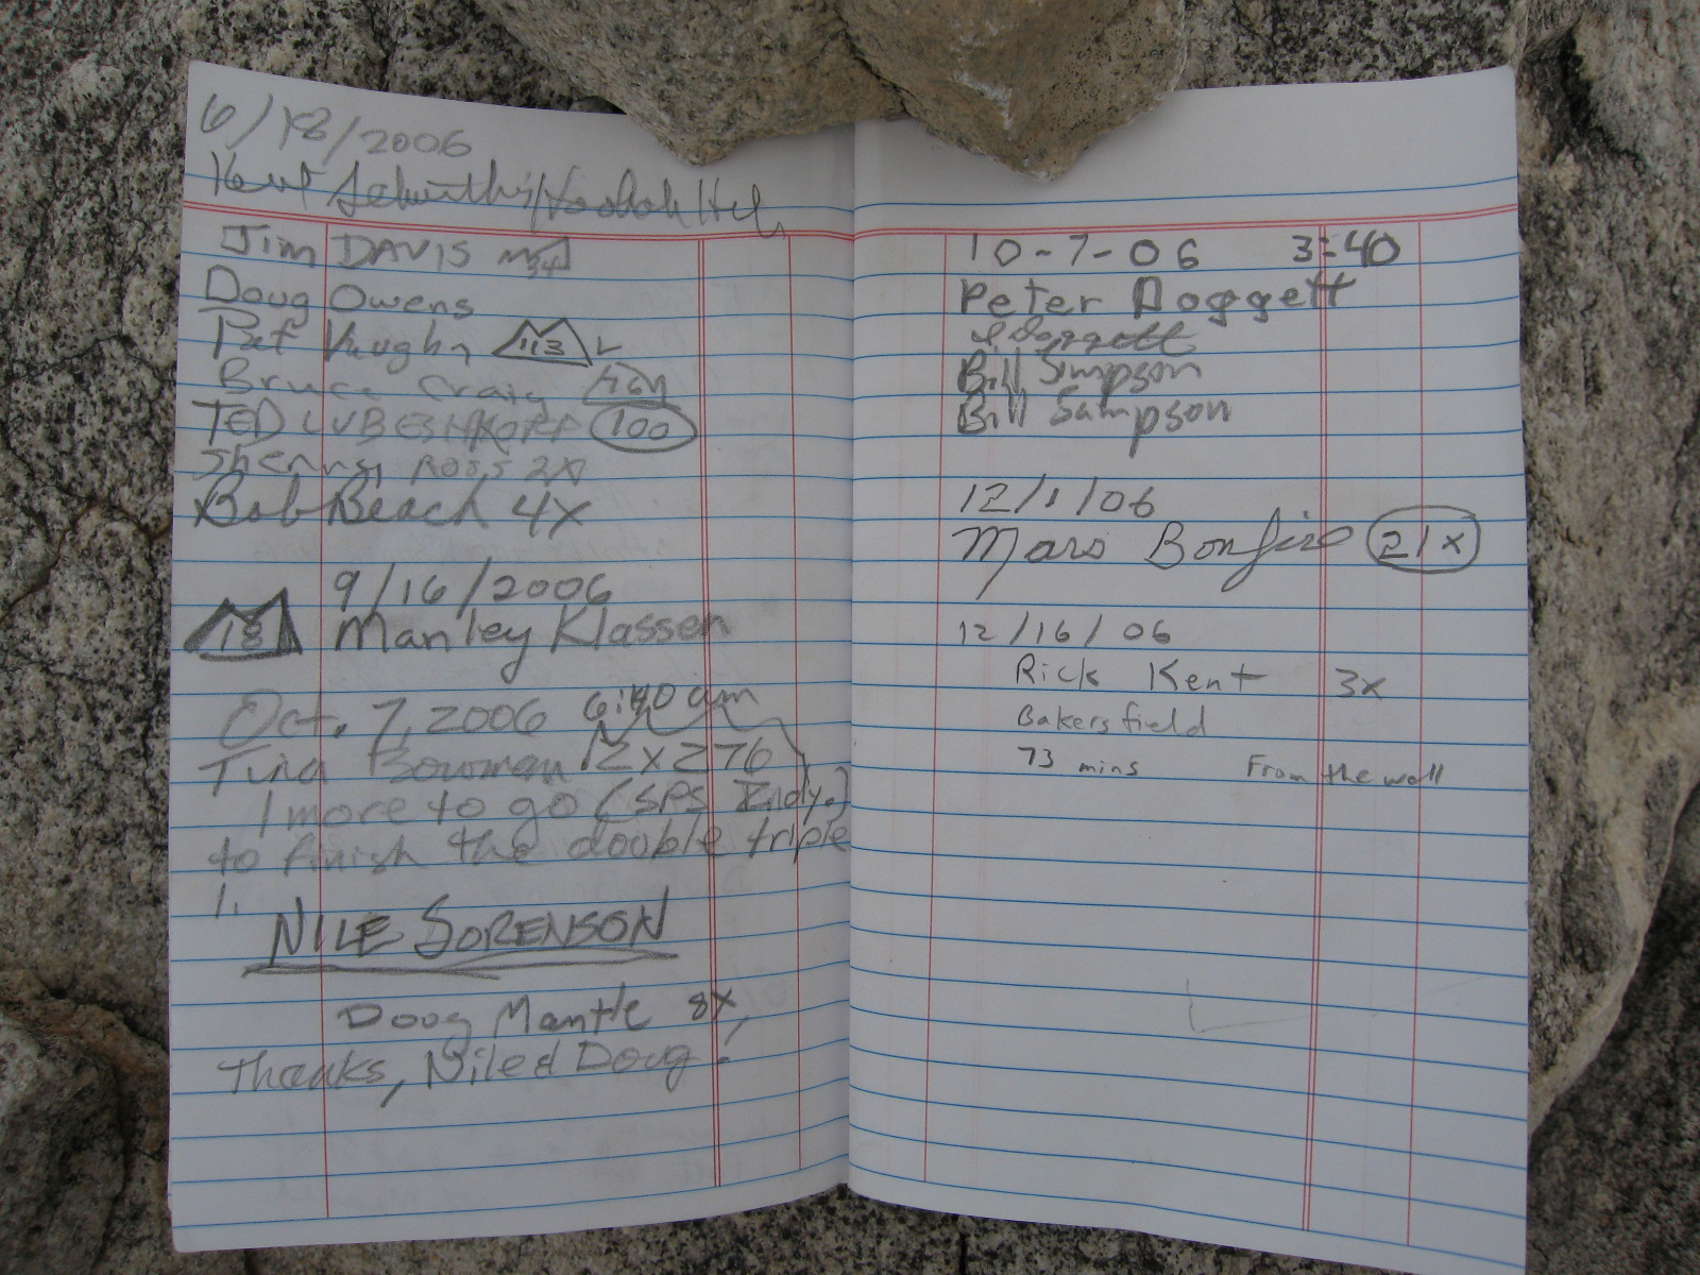 6/18/2006
Jim DAVIS
Doug Owens
Pat Vaughn 113
Bruce Craig
TED LUBESHKOFF 100
Sherry Ross 2X
Bob Beach 4X
9/16/2006
18 Manley Klassen
Oct. 7, 2006 6:40 am
Tina Bowman 12x276
1 more to go (SPS Indy.)
to finish the double triple
1.
NILE SORENSON
Doug Mantle 8X,
Thanks, Nile & Doug!
10-7-06 3:40
Peter Doggett
Bill Simpson
Bill Sampson
12/1/06
Mars Bonfire 21x
12/16/06
Rick Kent 3x
Bakersfield
73 mins From the wall